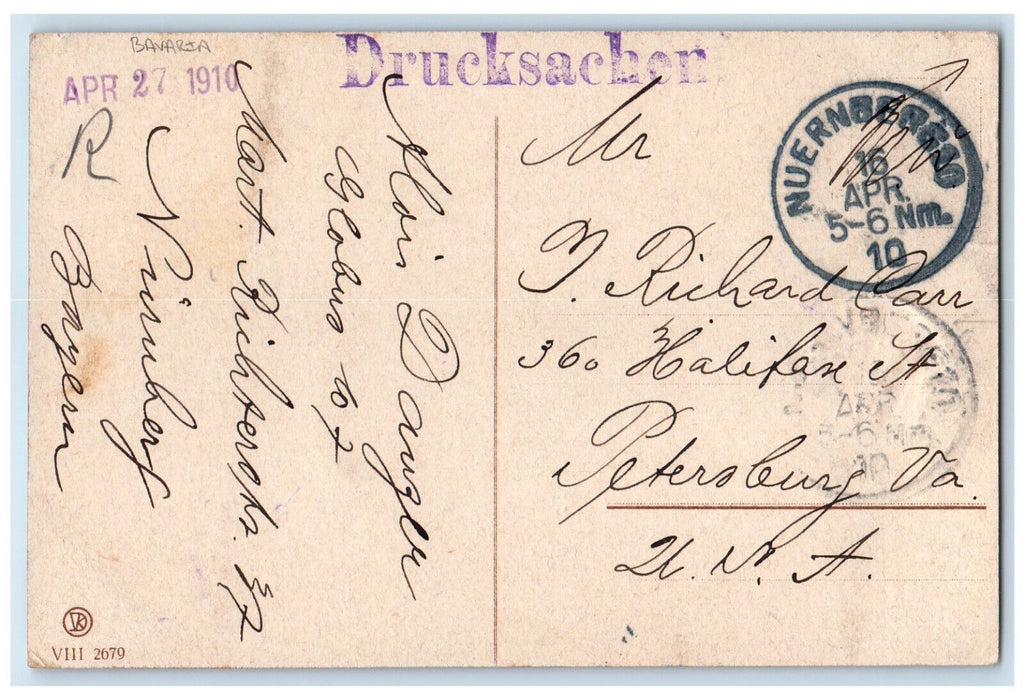 BAVARIA
APR 27 1910
Drucksachen
R
Alois Daugler
Globus 107
Nürnberg
Bayern
NUERNBERG
16
APR.
5-6 Nm.
10
Mr
Richard Carr
360 Halifax St
Petersburg Va.
U. S. A.
APR
5-6 Nm.
10
VK
VIII 2679